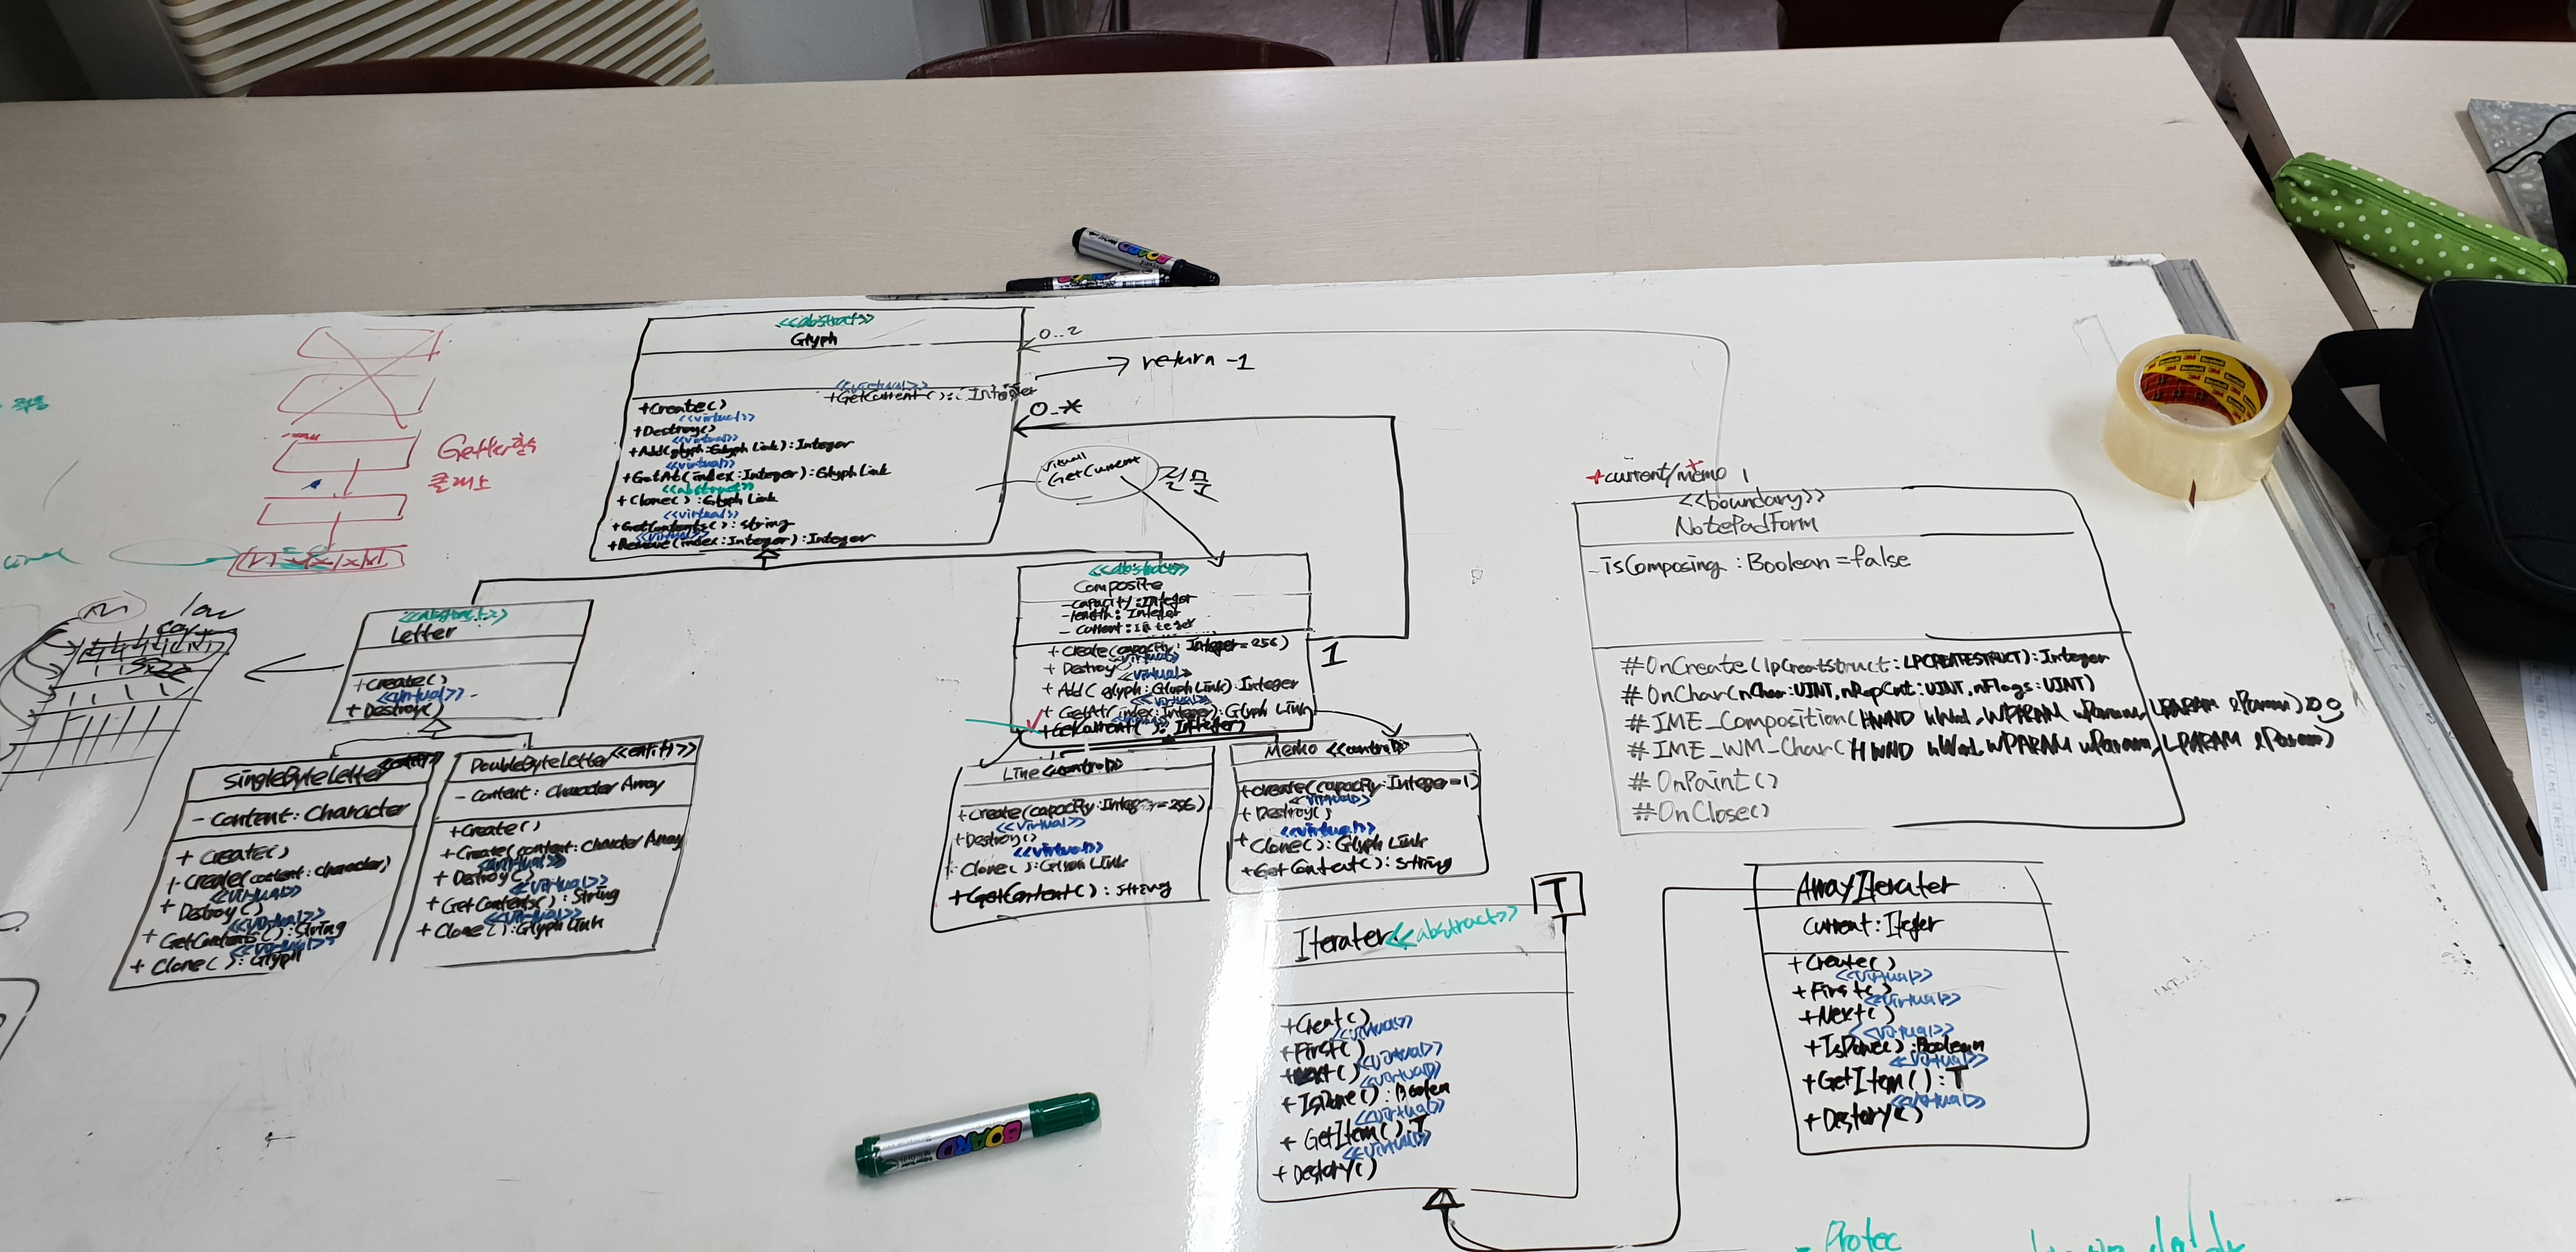 <<abstract>>
Glyph
<<virtual>>
+GetCurrent( ): Integer
+Create()
<<virtual>>
+Destroy()
<<virtual>>
+Add(glyph:Glyph Link):Integer
<<virtual>>
+GetAt(index:Integer):Glyph Link
<<abstract>>
+Clone( ):Glyph Link
<<virtual>>
+GetContents( ):string
<<virtual>>
+Remove(index:Integer):Integer
0..2
return -1
0..*
virtual
GetCurrent
질문
Getter함수
클래스
<<abstract>>
Letter
+Create()
<<virtual>>
+Destroy()
SingleByteLetter
-Content:Character
+Create()
+Create(content:character)
<<virtual>>
+Destroy()
<<virtual>>
+GetContents():String
<<virtual>>
+Clone( ):Glyph
DoubleByteLetter <<entity>>
-Content:Character Array
+Create()
+Create(content:Character Array
<<virtual>>
+Destroy()
<<virtual>>
+GetContents():String
<<virtual>>
+Clone( ):Glyph Link
<<abstract>>
Composite
-capacity:Integer
-length:Integer
-current:Integer
+Create(capacity:Integer=256)
<<virtual>>
+Destroy()
<<virtual>>
+Add(glyph:Glyph Link):Integer
<<virtual>>
+GetAt(index:Integer):Glyph Link
+GetCurrent( ):Integer
1
Line <<control>>
+Create(capacity:Integer=256)
<<virtual>>
+Destroy()
<<virtual>>
+Clone( ):Glyph Link
+GetContent( ):String
Memo <<control>>
+Create(capacity:Integer=1)
<<virtual>>
+Destroy()
<<virtual>>
+Clone( ):Glyph Link
+GetContent( ):String
+current/memo 1
<<boundary>>
NotePadForm
-isComposing:Boolean=false
#OnCreate(lpCreatStruct:LPCREATESTRUCT):Integer
#OnChar(nChar:UINT,nRepCnt:UINT,nFlags:UINT)
#IME_Composition(HWND hWnd,WPARAM wParam,LPARAM lParam)
#IME_WM_Char(HWND hWnd,WPARAM wParam,LPARAM lParam)
#OnPaint()
#OnClose()
T
Iterater <<abstract>>
+Creat()
<<virtual>>
+First()
<<virtual>>
+Next()
<<virtual>>
+IsDone():Boolen
<<virtual>>
+GetItem():T
<<virtual>>
+Destory()
ArrayIterater
current:Iteger
+Create()
<<virtual>>
+First()
<<virtual>>
+Next()
<<virtual>>
+IsDone():Boolean
<<virtual>>
+GetItem():T
<<virtual>>
+Destory()
BOARD
- Protec